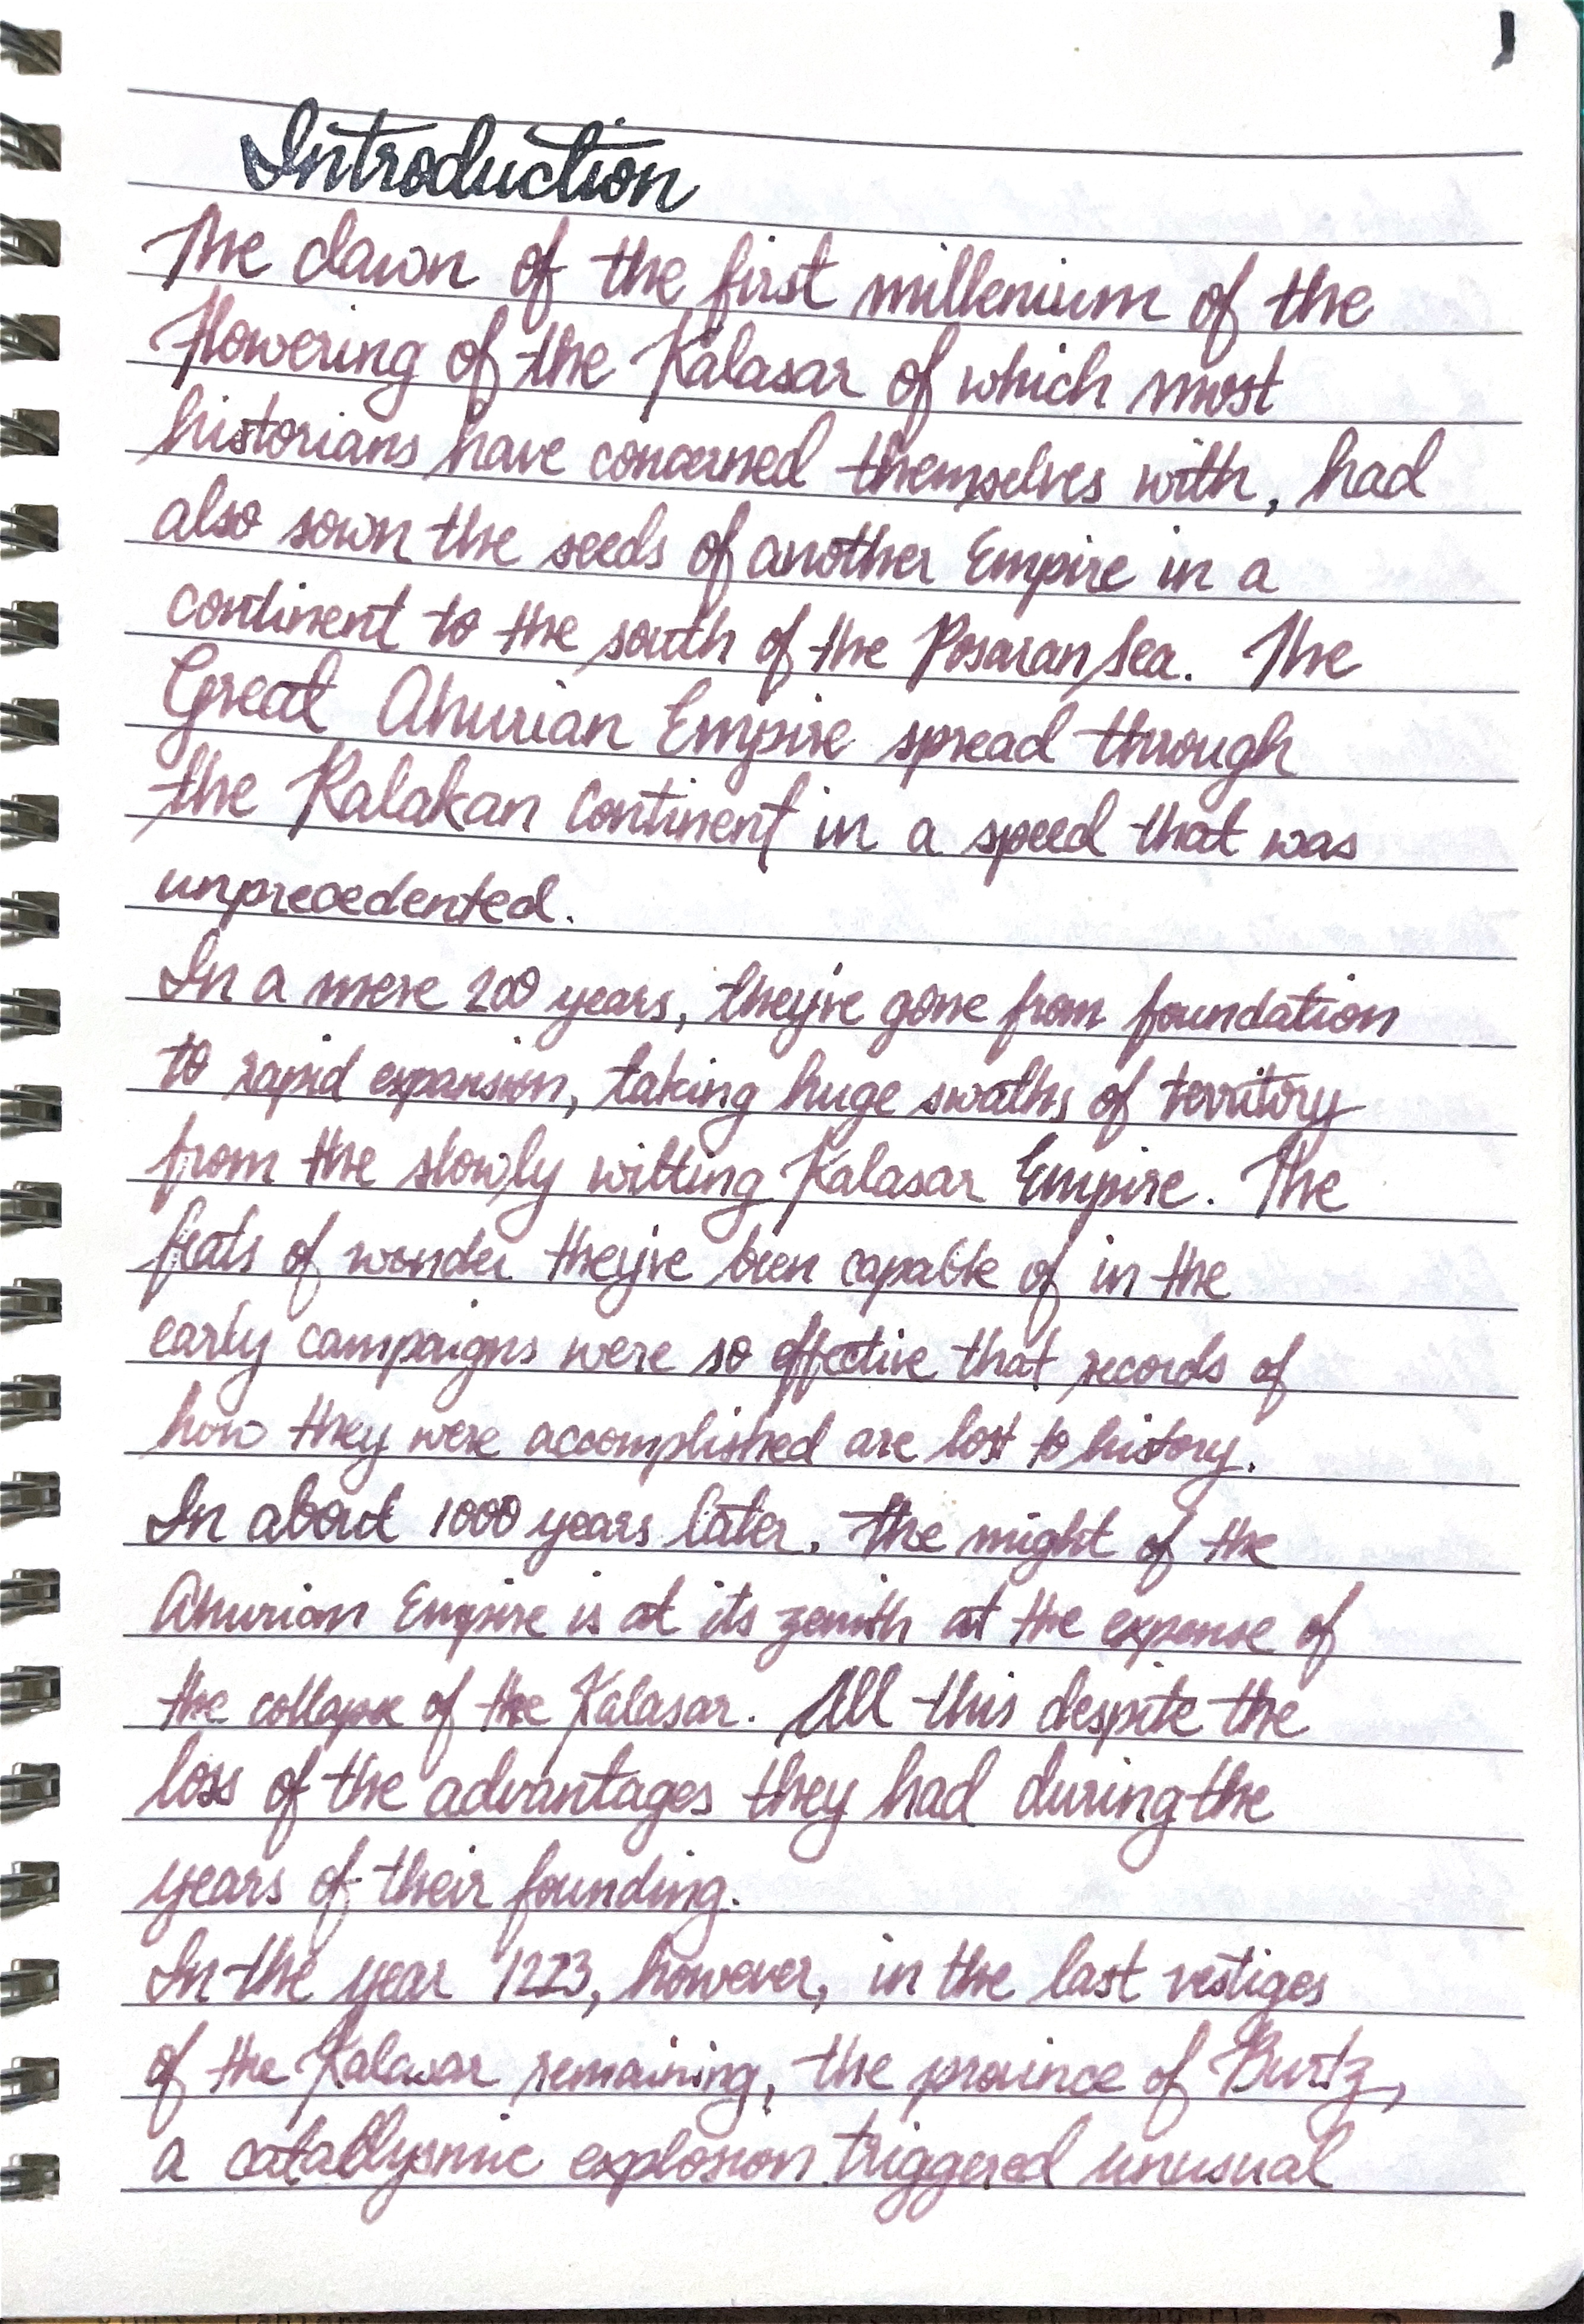 1
Introduction
The dawn of the first millenium of the
flowering of the Kalasar of which most
historians have concerned themselves with, had
also sown the seeds of another Empire in a
continent to the south of the Posaran Sea. The
Great Ahurian Empire spread through
the Ralakan continent in a speed that was
unprecedented.
In a mere 200 years, they've gone from foundation
to rapid expansion, taking huge swaths of territory
from the slowly wilting Kalasar Empire. The
feats of wonder they've been capable of in the
early campaigns were so effective that records of
how they were accomplished are lost to history.
In about 1000 years later, the might of the
Ahurian Empire is at its zenith at the expense of
the collapse of the Kalasar. All this despite the
loss of the advantages they had during the
years of their founding.
In the year 1223, however, in the last vestiges
of the Kalasar remaining, the province of Burtz,
a cataclysmic explosion triggered unusual